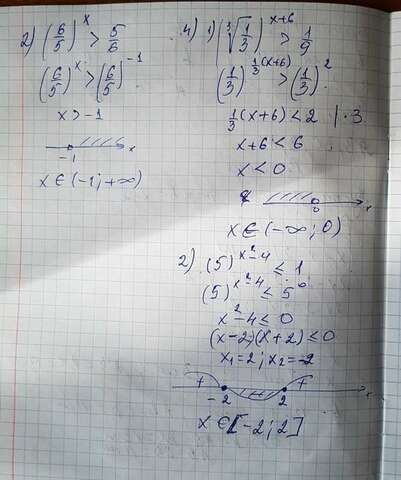 2) (6/5)^x > 5/6
(6/5)^x > (6/5)^-1
x > -1
-1 x
x ∈ (-1; +∞)
4) 1) (∛(1/3))^(x+6) > 1/9
(1/3)^(1/3(x+6)) > (1/3)^2
1/3(x+6) < 2 | · 3
x+6 < 6
x < 0
0 x
x ∈ (-∞; 0)
2) (5)^(x²-4) ≤ 1
(5)^(x²-4) ≤ 5^0
x²-4 ≤ 0
(x-2)(x+2) ≤ 0
x₁=2; x₂=-2
+ - +
-2 2 x
x ∈ [-2; 2]